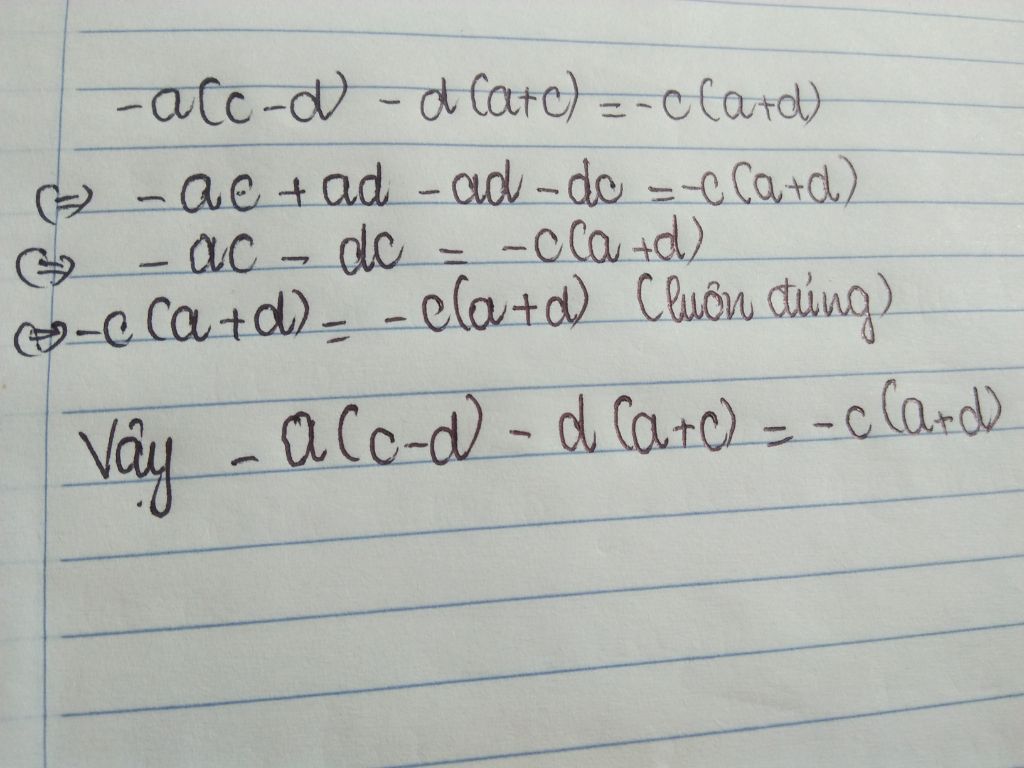 -a(c-d) - d(a+c) = -c(a+d)
(=) -ac + ad - ad - dc = -c(a+d)
(=) - ac - dc = -c(a+d)
(=) -c(a+d) = -c(a+d) (luôn đúng)
Vậy -a(c-d) - d(a+c) = -c(a+d)